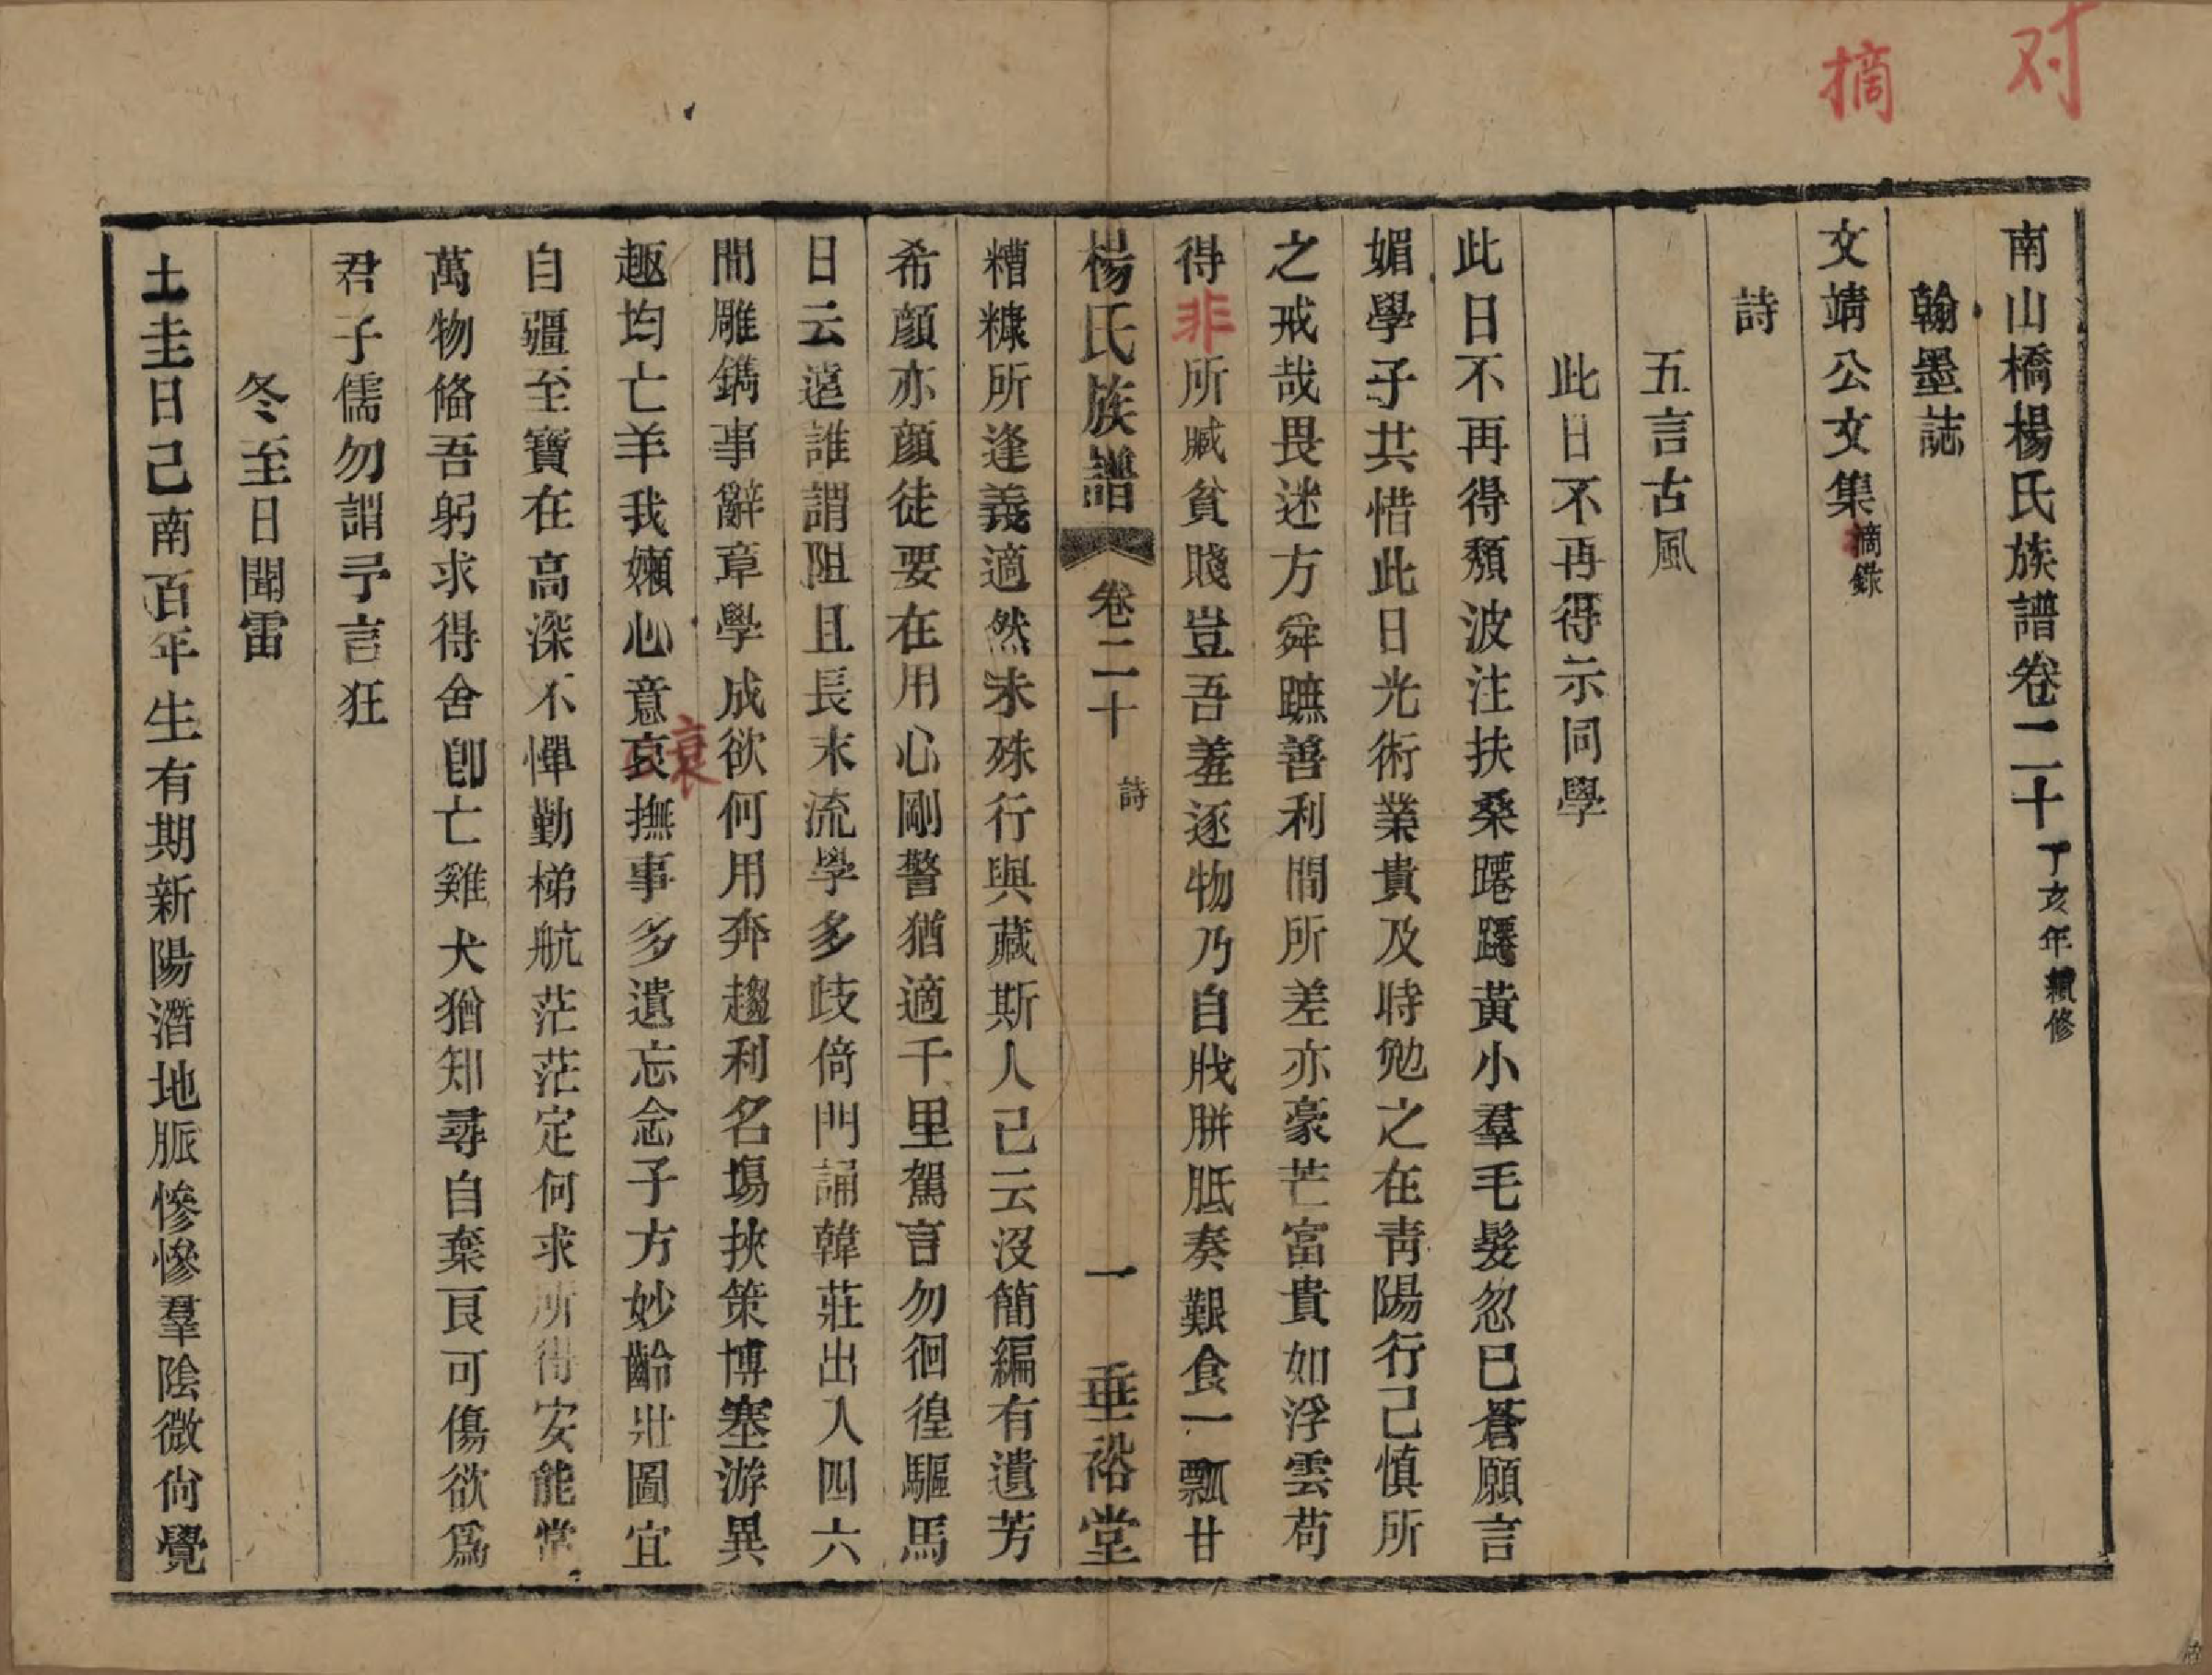 对
摘
南山橋楊氏族譜卷二十丁亥年續修
翰墨誌
文靖公文集摘錄
詩
五言古風
此日不再得示同學
此日不再得頽波注扶桑躚躚黃小羣毛髮忽已蒼願言
媚學子共惜此日光術業貴及時勉之在靑陽行己慎所
之戒哉畏迷方舜蹠善利間所差亦豪芒富貴如浮雲苟
得非所臧貧賤豈吾羞逐物乃自戕胼胝奏艱食一瓢甘
楊氏族譜 卷二十 詩 一 垂裕堂
糟糠所逢義適然未殊行與藏斯人已云沒簡編有遺芳
希顏亦顏徒要在用心剛警猶適千里駕言勿徊徨驅馬
日云遠誰謂阻且長末流學多歧倚門誦韓莊出入四六
間雕鐫事辭章學成欲何用奔趨利名塲挾策博塞游異
趣均亡羊我嬾心意哀衰撫事多遺忘念子方妙齡壯圖宜
自疆至寶在高深不憚勤梯航茫茫定何求所得安能常
萬物俻吾躬求得舍卽亡雞犬猶知尋自棄良可傷欲爲
君子儒勿謂予言狂
冬至日聞雷
土圭日己南百年生有期新陽潛地脈慘慘羣陰微尙覺